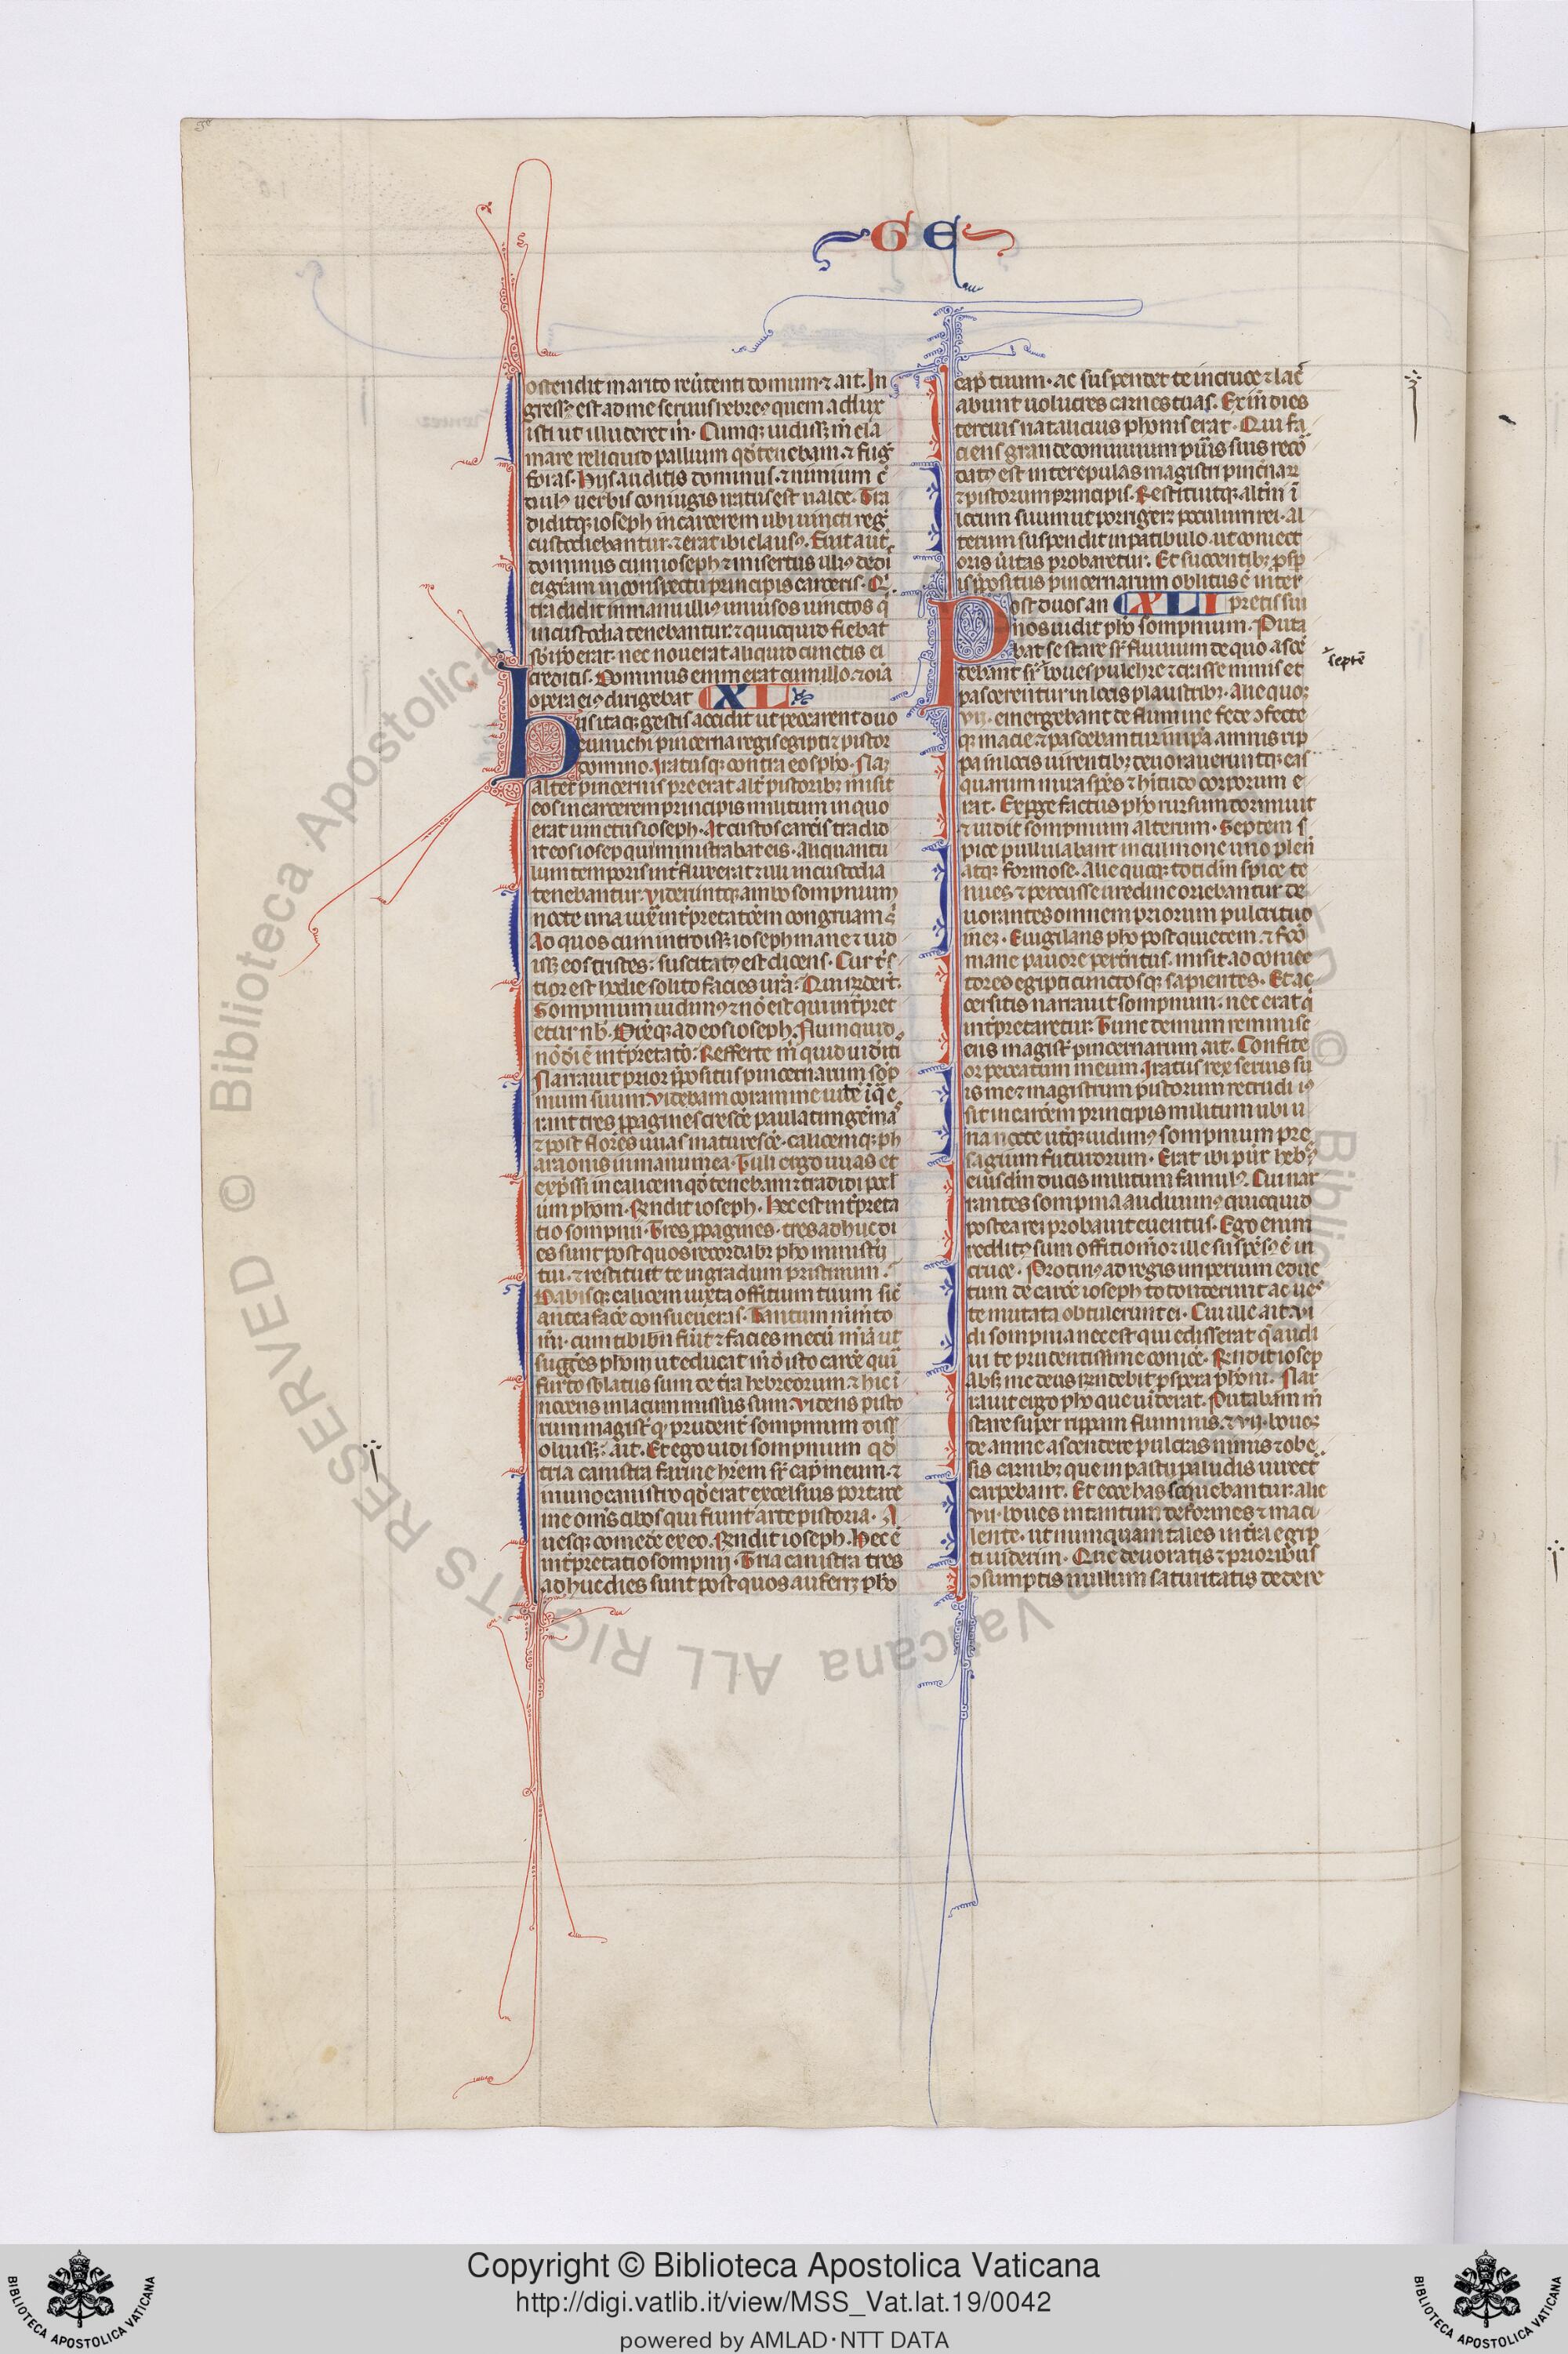 G E
ostendit marito reu̅tenti domum ⁊ ait. In
gress⁹ est ad me seruus hebre⁹ quem addux
isti ut illuderet m̅. Cumq; uidiss; m̅ cla
mare reliquid pallium qd̅ tenebam ⁊ fug̅
foras. Hijs auditis dominus ⁊ nimium c̅
dul⁹ uerbis coniugis iratus est ualde. Tra
diditq; ioseph in carcerem ubi uincti reg̅
custodiebantur ⁊ erat ibi claus⁹. Fuit aut̅
dominus cum ioseph ⁊ misertus illi⁹ dedi
ei gr̅am in conspectu principis carceris. Q̅
tradidit in manu illi⁹ uniuersos uinctos q̅
in custodia tenebantur ⁊ quicquid fiebat
sb ip̅o erat. nec nouerat aliquid cunctis ei
creditis. Dominus enim erat cum illo ⁊ oi̅a
opera ei⁹ dirigebat XL
Hijs itaq; gestis accidit ut peccarent duo
eunuchi pincerna regis egipti ⁊ pistor
domino. Iratusq; contra eos pho. Na;
alter pincernis preerat alt̅ pistorib; misit
eos in carcerem principis militum in quo
erat uinctus ioseph. At custos carcis tradid
it eos iosep qui ministrabat eis. Aliquantu
lum temporis int̅ fluxerat ⁊ illi in custodia
tenebantur. Videruntq; ambo sompnium
nocte una iux̅ int̅pretatoe̅m congruam s̅
Ad quos cum introiss; ioseph mane ⁊ uid
iss; eos tristes: suscitat⁹ est dicens. Cur t̅s
tior est hodie solito facies ur̅a. Qui r̅nder̅t.
Sompnium uidim⁹ ⁊ no̅ est qui int̅pret
etur nb̅. Dix̅q; ad eos ioseph. Numquid
no̅ di̅ e̅ int̅pretato̅. Refferte m̅ quid uiditi
Narrauit prior p̅positus pincernarum so̅p
nium suum. Videbam coram me uite̅ i̅ q̅ e
rant tres p̅pagines cresce̅ paulatim gemma̅
⁊ post flores uuas maturesce̅. calicemq; ph
araonis in manu mea. Tuli ergo uuas et
exp̅ssi in calicem qd̅ tenebam ⁊ tradidi pocl̅
um phoni. R̅ndit ioseph. Hec est int̅preta
tio sompnii. Tres p̅pagines. tres adhuc di
es sunt post quos recordabr̅ pho ministrij
tui. ⁊ restituet te in gradum pristinum.
Dabisq; calicem iuxta offitium tuum sic̅
antea face̅ consueueras. Tantum mim̅to
m̅i. cum tibi bn̅ fu̅it ⁊ facies mecu̅ mi̅a̅ ut
sugge̅s phoni ut educat m̅ d̅ isto carce̅ qui̅
furto sblatus sum de t̅ra hebreorum ⁊ hic i̅
nocens in lacum missus sum. Videns pisto
rum magist̅ q̅ prudent̅ sompnium diss
oluiss;. ait. Et ego uidi sompnium qd̅
tria canistra farine hr̅em sr̅ cap̅ meum. ⁊
in uno canistro qd̅ erat excelsius portare
me om̅s cibos qui fiunt arte pistoria. A
uesq; comede̅ ex eo. R̅ndit ioseph. Hec e̅
int̅pretatio sompnij. Tria canistra tres
adhuc dies sunt post quos aufer; pho
cap̅ tuum. ac suspendet te in cruce ⁊ lac̅
abunt uolucres carnes tuas. Exin dies
tercius natalicius phonis erat. Qui fa
ciens grande conuiuium pu̅is suis reco̅
dat⁹ est inter epulas magistri pincnar;
⁊ pistorum principis. Restituitq; alt̅m i̅
locum suum ut porriger; poculum rei. al
terum suspendit in patibulo. ut coniect
oris u̅itas probaretur. Et succentib; p̅sp̅
is p̅positus pincernarum oblitus e̅ inter
Post duos an XLI pretis sui
nos uidit pho sompnium. Puta
bat se stare sr̅ fluuium de quo asce̅
debant sr̅ boues pulchre ⁊ crasse nimis et
septe̅
pascerentur in locis plaustrib;. Alie quoq;
vij. emergebant de flumine fede ꝯfecte
q; macie ⁊ pascebantur in ip̅a amnis rip
pa in locis uirentib; deuorauerunt q; eas
quarum mira spe̅s ⁊ h̅itudo corporum e
rat. Exp̅gefactus pho rursum dormiuit
⁊ uidit sompnium alterum. Septem s
pice pullulabant in culmo ne uno plen̅
atq; formose. alie quoq; totidm̅ spice te
nues ⁊ percusse uredine oriebantur de
uorantes omnem priorum pulcritud
ine;. Euigilans pho post quietem ⁊ fco̅
mane pauore pert̅ritus. misit ad coniec
tores egipti cunctosq; sapientes. Et ac
cersitis narrauit sompnium. nec erat q̅
int̅pretaretur. Tunc demum reminisc̅
ens magist̅ pincernarum ait. Confite
or peccatum meum. Iratus rex seruis su
is me ⁊ magistrum pistorum retrudi i⁹
sit in carce̅m principis militum ubi u
na nocte ut̅q; uidim⁹ sompnium pre
sagium futurorum. Erat ibi pu̅r heb⁹
eiusdm̅ ducis militum famul⁹. Cui nar
rantes sompnia audiuim⁹ quicquid
postea rei probauit euentus. Ego enim
reddit⁹ sum offitio m̅o ⁊ ille suspe̅s⁹ e̅ in
cruce. Protin⁹ ad regis imperium educ
tum de carce̅ ioseph totonderunt ac ue̅
te mutata obtulerunt ei. Cui ille ait. Vi
di sompnia nec est qui edisserat q̅ audi
ui te prudentissime conice̅. R̅ndit iosep
Absq; me deus r̅ndebit p̅spera phoni. Nar
rauit ergo pho que uiderat. Putabam m̅
stare super rippam fluminis. ⁊ vij. boues
de amne ascendere pulcras nimis ⁊ obe
sis carnib; que in pastu paludis uirect
carpebant. Et ecce has sequebantur alie
vij. boues in tantum deformes ⁊ maci
lente. ut numquam tales in t̅ra egip
ti uiderim. Que deuoratis ⁊ prioribus
ꝯsumptis nullum saturitatis dedere
Copyright © Biblioteca Apostolica Vaticana
http://digi.vatlib.it/view/MSS_Vat.lat.19/0042
powered by AMLAD·NTT DATA
BIBLIOTECA APOSTOLICA VATICANA
BIBLIOTECA APOSTOLICA VATICANA
© Biblioteca Apostolica Vaticana ALL RIGHTS RESERVED